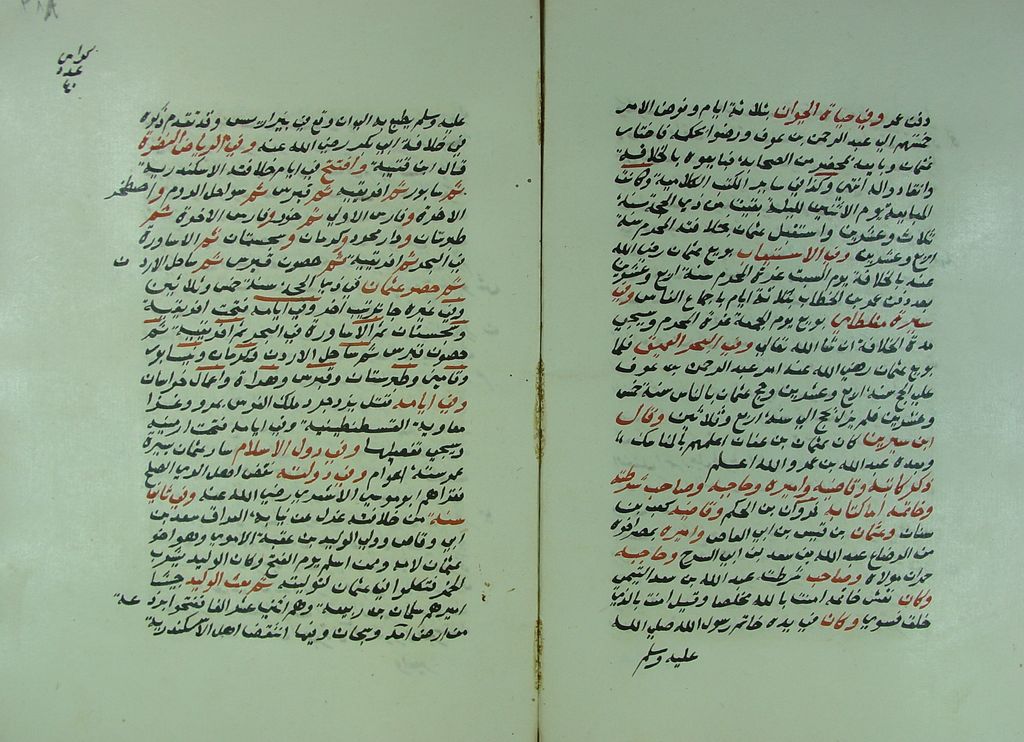 دفن عمر وفي حياة الحيوان بثلاثة ايام وفوض الامر
خمستهم الى عبد الرحمن بن عوف ورضوا بحكمه فاختار
عثمان وبايعه بمحضر من الصحابة فبايعوه بالخلافة
وانقادوا له انتهى وكذا في ساير الكتب الكلامية وكانت
المبايعة يوم الاثنين لليلة بقيت من ذي الحجة سنة
ثلاث وعشرين واستقبل عثمان بخلافته المحرم سنة
اربع وعشرين وفي الاستيعاب بويع عثمان رضي الله
عنه بالخلافة يوم السبت غرة المحرم سنة اربع وعشرين
بعد دفن عمر بن الخطاب بثلاثة ايام باجماع الناس وفي
سيرة مغلطاي بويع يوم الجمعة غرة المحرم وسيجي
مدة الخلافة ان شا الله تعالى وفي البحر العميق فلما
بويع عثمان رضي الله عنه امر عبد الرحمن بن عوف
على الحج سنة اربع وعشرين وحج عثمان بالناس سنة خمس
وعشرين فلم يزل يحج الى سنة اربع وثلاثين وقال
ابن سيرين كان عثمان بن عفان اعلمهم بالمناسك
وبعده عبد الله بن عمر والله اعلم
ذكر كاتبه وقاضيه واميره وحاجبه وصاحب شرطته
وخاتمه اما كاتبه فمروان بن الحكم وقاضيه كعب بن
وعثمان بن قيس بن ابي العاص واميره بمصر اخوه
من الرضاع عبد الله بن سعد بن ابي السرح وحاجبه
حمران مولاه وصاحب شرطته عبد الله بن سعد التيمي
وكان نقش خاتمه امنت بالله مخلصا وقيل امنت بالذي
خلق فسوى وكان في يده خاتم رسول الله صلى الله
عليه وسلم
عليه وسلم يطبع به الى ان وقع في بير اريس وقد تقدم ذكره
في خلافة ابي بكر رضي الله عنه وفي الرياض النضرة
قال ابن قتيبة وافتتح في ايام خلافته الاسكندرية
ثم سابور ثم افريقية ثم قبرس ثم سواحل الروم واصطخر
الاخرة وفارس الاولى ثم خوز وفارس الاخرة ثم
طبرستان ودار بجرد وكرمان وسجستان ثم الاساورة
في البحر ثم افريقية ثم حصون قبرس ثم ساحل الاردن
ثم حصر عثمان في ذي الحجة سنة خمس وثلاثين
وفي غيره جا بترتيب اخر وفي ايامه فتحت افريقية
وسجستان ثم الاساورة في البحر ثم افريقية ثم
حصون قبرس ثم ساحل الاردن وكرمان ونيسابور
وفارس وطبرستان وقبرس وهراة واعمال خراسان
وفي ايامه قتل يزدجرد ملك الفرس بمرو وغزا
معاوية القسطنطينية وفي ايامه فتحت ارمينية
وسيجي تفصيلها وفي دول الاسلام سار عثمان سيرة
عمر ستة اعوام وفي دولته نقض اهل الري الصلح
فغزاهم ابو موسى الاشعري رضي الله عنه وفي ثاني
سنة من خلافته عزل عن نيابة العراق سعد بن
ابي وقاص وولى الوليد بن عقبة الاموي وهو اخو
عثمان لامه وممن اسلم يوم الفتح وكان الوليد يشرب
الخمر فتكلموا في عثمان لتوليته ثم بعث الوليد جيشا
اميرهم سلمان بن ربيعة وهم اثني عشر الفا فتحوا برذعة
من ارض وفيها انتقض اهل الاسكندرية